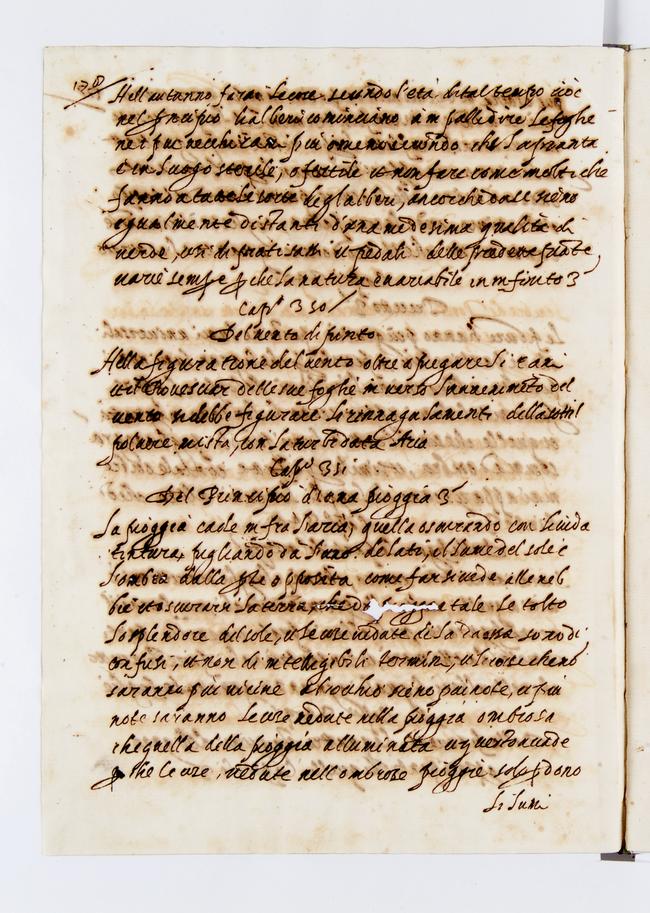 178
Nell autunno farai le cose secondo l'età di tal tempo cioè
nel principio li alberi cominciano a impallidire le foghe
ne i piu vechi rami piu o meno secondo che la pianta
è in luogo sterile, o fertile et non fare come molti che
fanno tutte le sorte degl'alberi, ancorche da te sieno
egualmente distanti d'una medesima qualità di
verde, di prati sassi et pedali delle predette piante
varie sempre p che la natura è variabile in infinito
Capº 350
Del vento dipinto
Nella figuratione del vento oltre a piegare li rami
et il Rovesciar delle sue foghe inverso l'avvenimeto del
vento si debbe figurare li rinnugolamenti della sottil
polvere mista con la turbidata Aria
Capº 351
Del Principio d'una pioggia
La pioggia cade in fra l'aria, quella oscurando con livida
tintura, pighando da l'uno de lati, il lume del sole e
l'ombra dalla pte opposita come far si vede alle neb
bie et oscurarsi la terra che da tale le tolto
lo splendore del sole, et le cose vedute di la da essa sono di
confusi, et non di intelligibili termini, et le cose che
saranno piu vicine al occhio sieno piu note, et piu
note saranno le cose vedute nella pioggia ombrosa
che quella della pioggia alluminata et questo accade
p che le cose, vedute nell ombrose pioggie solo pdono
li lumi